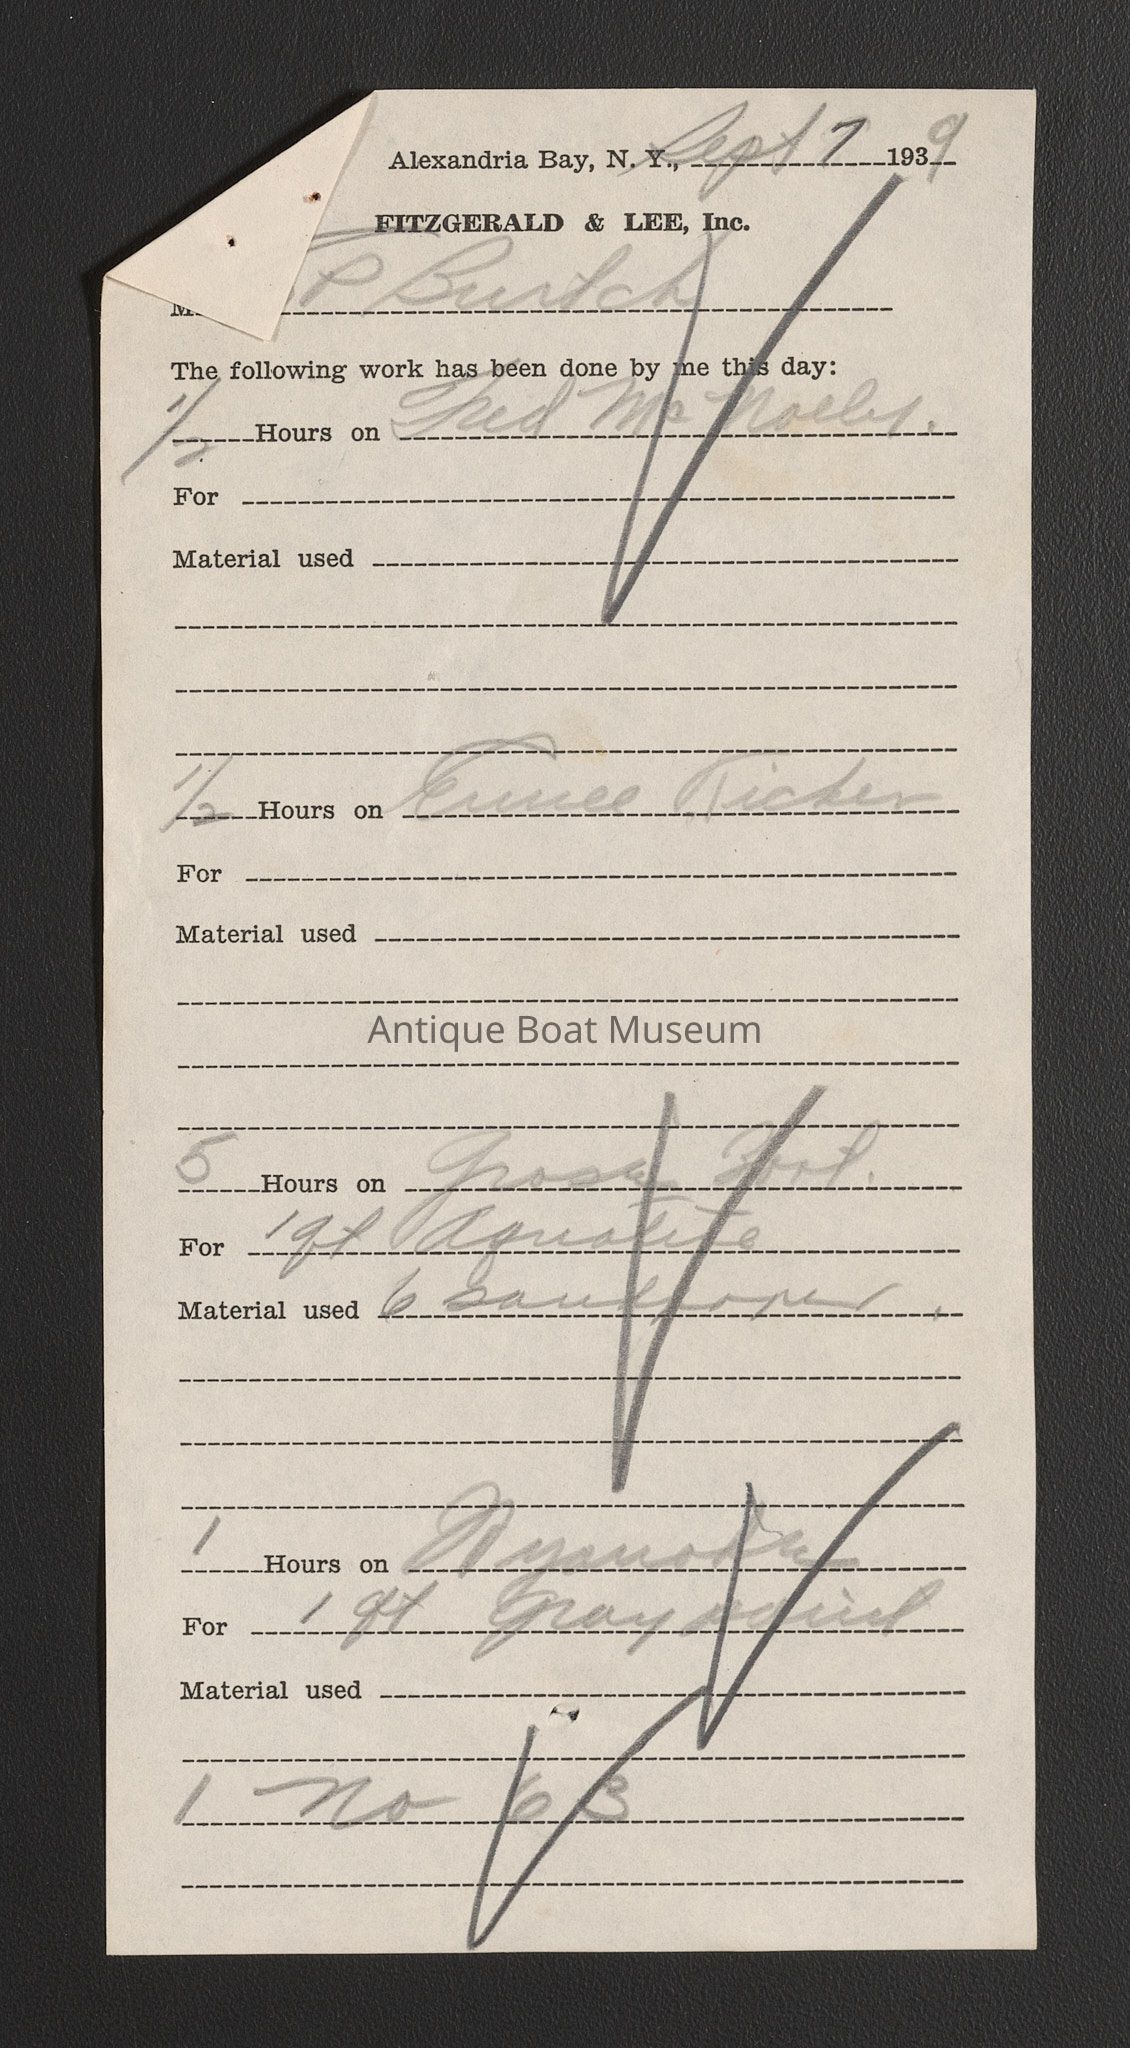 Alexandria Bay, N. Y., Sept 7 1939
FITZGERALD & LEE, Inc.
M P Burtch
The following work has been done by me this day:
1/2 Hours on Fred
For
Material used
1/2 Hours on Ricker
For
Material used
Antique Boat Museum
5 Hours on
For 1 qt Aquatite
Material used 6 sandpaper.
1 Hours on
For 1 qt Gray paint
Material used
1 No 63